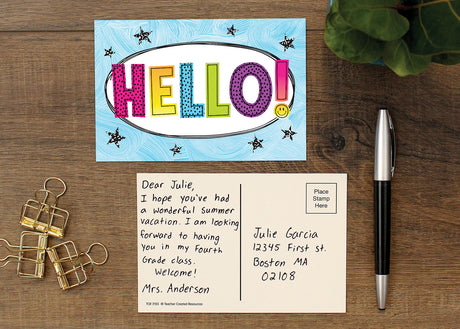 HELLO!
Dear Julie,
I hope you've had
a wonderful summer
vacation. I am looking
forward to having
you in my Fourth
Grade class.
Welcome!
Mrs. Anderson
Place
Stamp
Here
Julie Garcia
12345 First st.
Boston MA
02108
© Teacher Created Resources